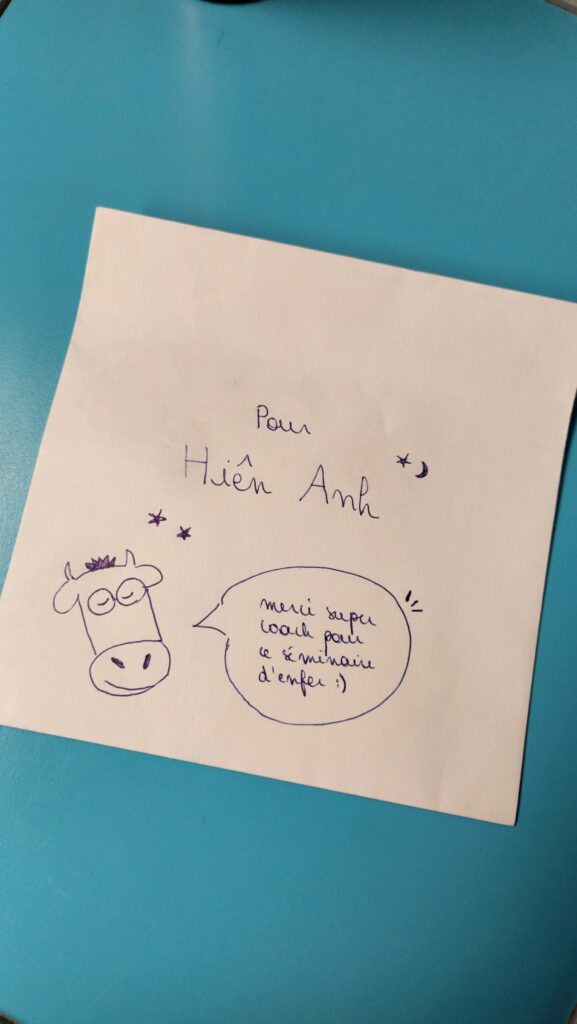 Pour
Hiên Anh
merci super
coach pour
ce séminaire
d'enfer :)